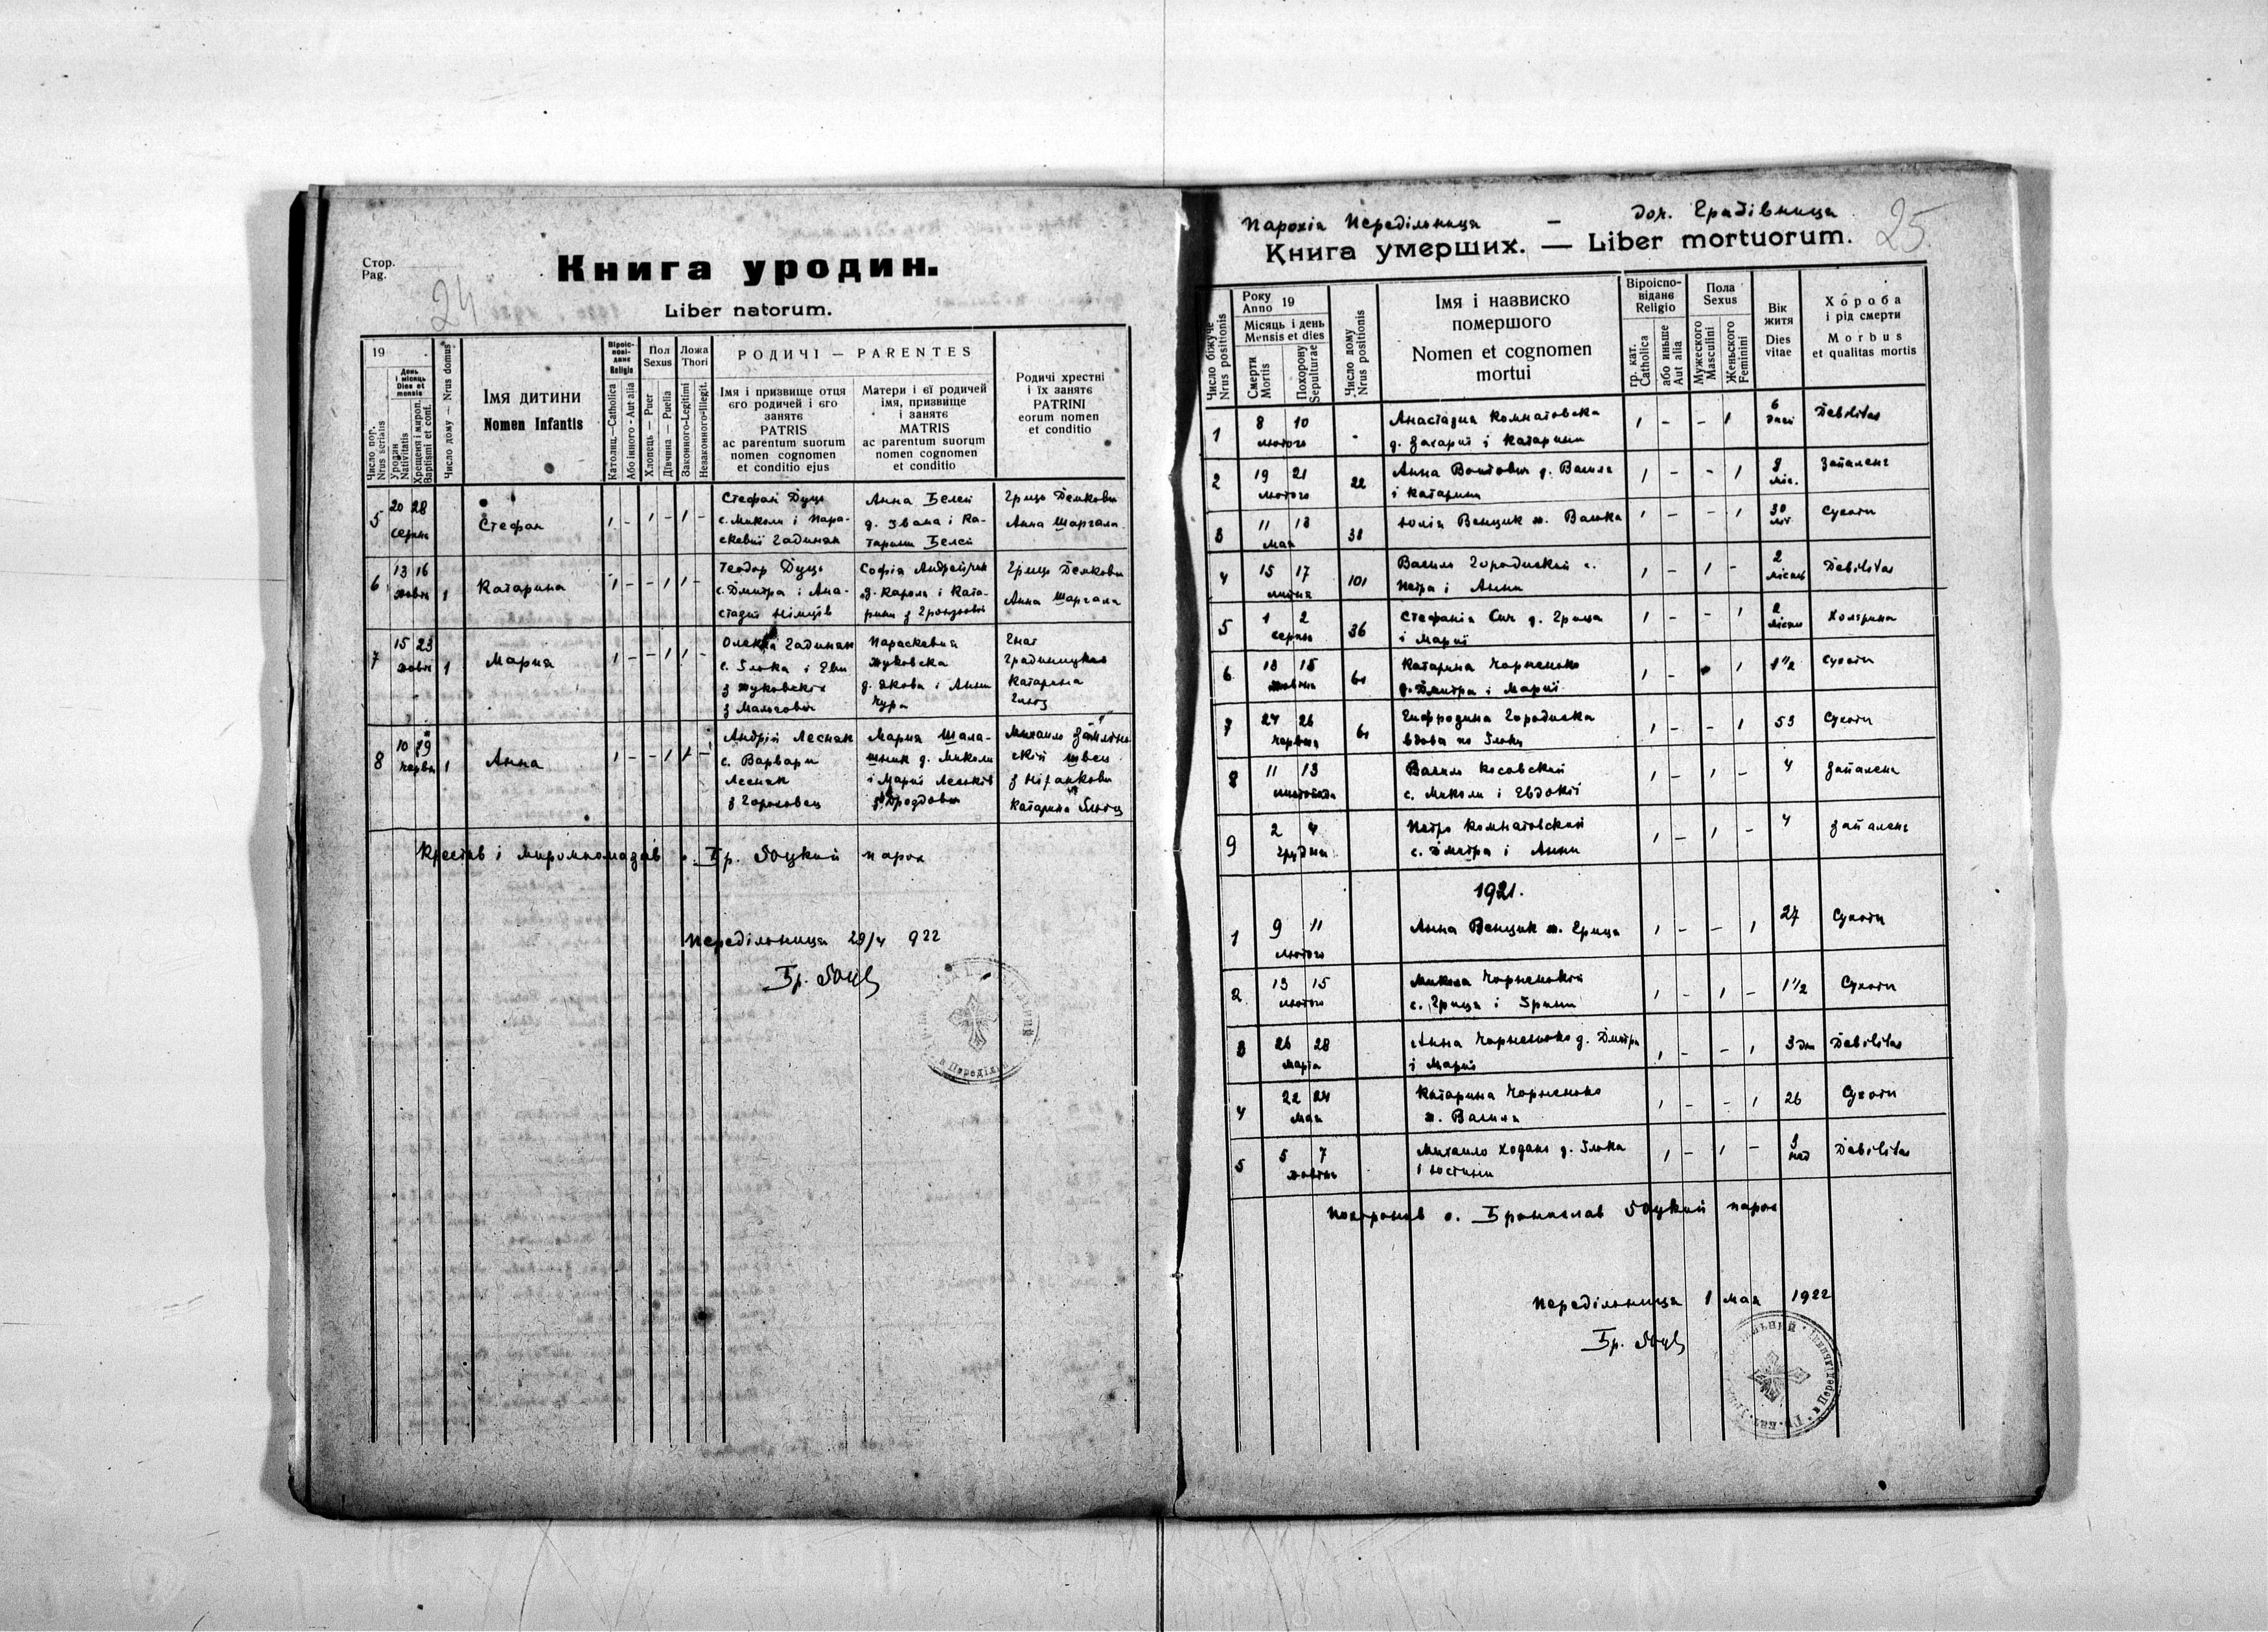 Стор.
Pag.
24
Книга уродин.
Liber natorum.
19
День і місяць Dies et mensis
Число пор. Nrus serialis
Уродин Nativitatis
Хрещеня і миропом. Baptismi et conf.
Число дому — Nrus domus
ІМЯ ДИТИНИ
Nomen Infantis
Віроісповіданє Religio
Католиц.—Catholica
Або інного - Aut alia
Пол Sexus
Хлопець — Puer
Дівчина — Puella
Ложа Thori
Законного-Legitimi
Незаконного-Illegit.
РОДИЧІ — PARENTES
Імя і призвище отця
єго родичей і єго
занятє
PATRIS
ac parentum suorum
nomen cognomen
et conditio ejus
Матери і єї родичей
імя, призвище
і занятє
MATRIS
ac parentum suorum
nomen cognomen
et conditio
Родичі хрестні
і їх занятє
PATRINI
eorum nomen
et conditio
5 20 28 Стефан 1 - 1 - 1 - Стефан Дуць Анна Белей Гриць Демкович
серпня с. Миколи і Пара- д. Івана і Ка- Анна Шаргала
скевії Гадиняк тарини Белей
6 13 16 1 Катарина 1 - - 1 1 - Теодор Дуць Софія Андрейчик Гриць Демкович
жовтн с. Дмитра і Ана- д. Кароля і Ката- Анна Шаргала
стазії Німців
7 15 23 1 Мария 1 - - 1 1 - Олекса Гадиняк Параскевия Гнат
жовтн с. Ілька і Еви Жуковска Градиницкий
з Жуковских д. Якова і Анни Катарина
8 10 19 1 Анна 1 - - 1 1 - Андрій Лесняк Мария Шала- Михайло
червн с. Варвари д. Миколи швець
Лесняк і Марії
Катарина
Крестив і миромпомазав о. Бр. Яоцкий парох
Передільниця 29/4 922
Парохія Передільниця — доч. Градівниця
25
Книга умерших. — Liber mortuorum.
Число біжуче Nrus positionis
Року Anno 19
Місяць і день
Mensis et dies
Смерти Mortis
Похорону Sepulturae
Число дому Nrus positionis
Імя і назвиско
помершого
Nomen et cognomen
mortui
Віроіспо-
віданє
Religio
гр. кат. Catholica
або иньше Aut alia
Пола
Sexus
Мужеского Masculini
Женьского Feminini
Вік
житя
Dies
vitae
Хороба
і рід смерти
Morbus
et qualitas mortis
1 8 10 Анастазия Комнатовска 1 - - 1 6 Debilitas
лютого д. Захарії і Катарини дней
2 19 21 22 Анна Войтович д. Василя 1 - - 1 9 Запаленє
лютого і Катарини міс.
3 11 13 38 Юлія Венцик ж. Васька 1 - - 1 30 Сухоти
мая літ
4 15 17 101 Василь Городиский с. 1 - 1 - 2 Debilitas
липня Петра і Анни місяць
5 1 2 36 Стефанія Сич д. Гриця 1 - - 1 2 Холєрина
серпня і Марії місяці
6 13 15 61 Катарина Чорненько 1 - 1 1 1/2 Сухоти
жовтня д. Дмитра і Марії
7 24 26 61 Евфрозина Городиска 1 - - 1 53 Сухоти
червня вдова по Ільку
8 11 13 Василь Косовский 1 - 1 - 4 Запаленє
листопада с. Миколи і Евдокії
9 2 4 Петро Комнатовский 1 - 1 - 4 Запаленє
грудня с. Дмитра і Анни
1921.
1 9 11 Анна Венцик ж. Гриця 1 - - 1 27 Сухоти
лютого
2 13 15 Микола Чорненький 1 - 1 - 1 1/2 Сухоти
лютого с. Гриця і Ірини
3 26 28 Анна Чорненько д. Дмитра 1 - - 1 3 дн Debilitas
марта і Марії
4 22 24 Катарина Чорненько 1 - - 1 26 Сухоти
мая ж. Василя
5 5 7 Михайло Ходань д. Ілька 1 - 1 - Debilitas
жовтня і Юстини
Похоронив о. Броніслав Яоцкий парох
Передільниця 1 мая 1922